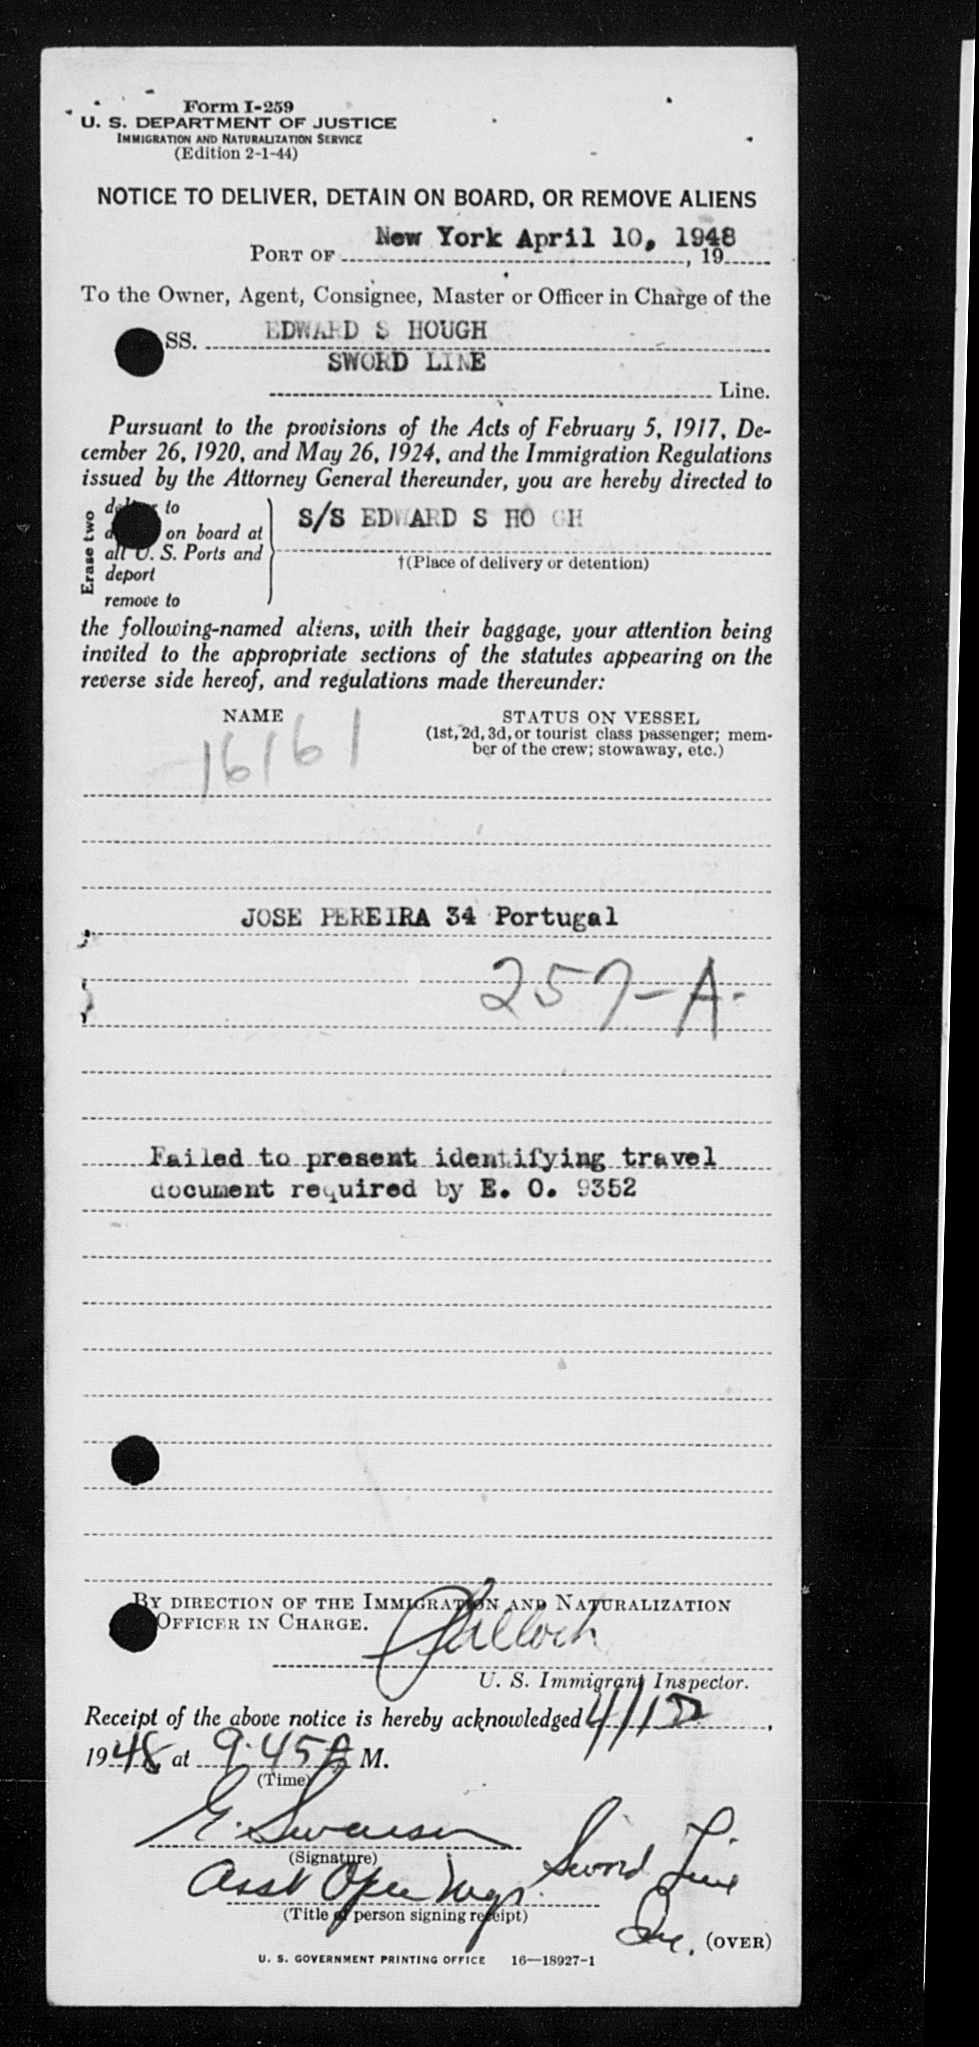 Form I-259
U. S. DEPARTMENT OF JUSTICE
IMMIGRATION AND NATURALIZATION SERVICE
(Edition 2-1-44)
NOTICE TO DELIVER, DETAIN ON BOARD, OR REMOVE ALIENS
PORT OF New York April 10, 1948, 19
To the Owner, Agent, Consignee, Master or Officer in Charge of the
SS. EDWARD S HOUGH
SWORD LINE
Line.
Pursuant to the provisions of the Acts of February 5, 1917, De-
cember 26, 1920, and May 26, 1924, and the Immigration Regulations
issued by the Attorney General thereunder, you are hereby directed to
Erase two
to
on board at
all U. S. Ports and
deport
remove to
S/S EDWARD S HO GH
†(Place of delivery or detention)
the following-named aliens, with their baggage, your attention being
invited to the appropriate sections of the statutes appearing on the
reverse side hereof, and regulations made thereunder:
NAME
STATUS ON VESSEL
(1st, 2d, 3d, or tourist class passenger; mem-
ber of the crew; stowaway, etc.)
16161
JOSE PEREIRA 34 Portugal
257-A.
Failed to present identifying travel
document required by E. O. 9352
BY DIRECTION OF THE IMMIGRATION AND NATURALIZATION
OFFICER IN CHARGE.
U. S. Immigrant Inspector.
Receipt of the above notice is hereby acknowledged 4/
1948, at 9:45 A M.
(Time)
G. Swanson
(Signature)
Asst Oper Mgr. Sword Line
(Title of person signing receipt)
Inc.
(OVER)
U. S. GOVERNMENT PRINTING OFFICE 16—18927-1